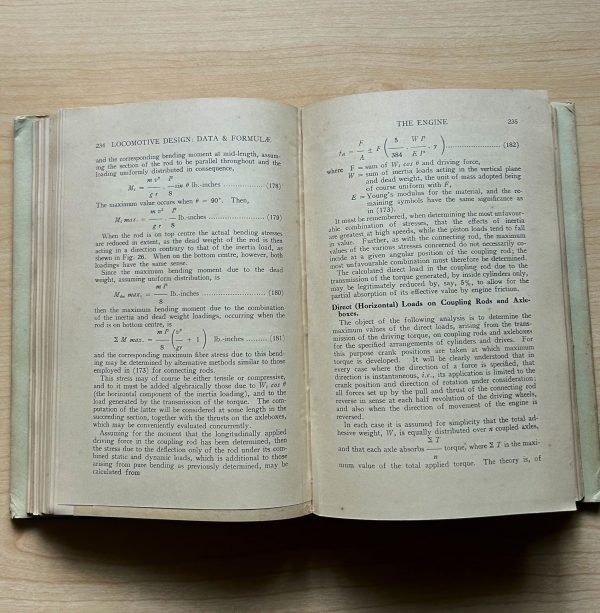 234 LOCOMOTIVE DESIGN: DATA & FORMULÆ
and the corresponding bending moment at mid-length, assum-
ing the section of the rod to be parallel throughout and the
loading uniformly distributed in consequence,
M₁ = m v² / g r · l² / 8 sin θ lb.-inches (178)
The maximum value occurs when θ = 90°. Then,
M₁ max. = m v² / g r · l² / 8 lb.-inches (179)
When the rod is on top centre the actual bending stresses
are reduced in extent, as the dead weight of the rod is then
acting in a direction contrary to that of the inertia load, as
shewn in Fig. 26. When on the bottom centre, however, both
loadings have the same sense.
Since the maximum bending moment due to the dead
weight, assuming uniform distribution, is
max. = m l² / 8 lb.-inches (180)
then the maximum bending moment due to the combination
of the inertia and dead weight loadings, occurring when the
rod is on bottom centre, is
Σ M max. = m l² / 8 ( v² / g r + 1 ) lb.-inches (181)
and the corresponding maximum fibre stress due to this bend-
ing may be determined by alternative methods similar to those
employed in (173) for connecting rods.
This stress may of course be either tensile or compressive,
and to it must be added algebraically those due to W₁ cos θ
(the horizontal component of the inertia loading), and to the
load generated by the transmission of the torque. The com-
putation of the latter will be considered at some length in the
succeeding section, together with the thrusts on the axleboxes,
which may be conveniently evaluated concurrently.
Assuming for the moment that the longitudinally applied
driving force in the coupling rod has been determined, then
the stress due to the deflection only of the rod under its com-
bined static and dynamic loads, which is additional to those
arising from pure bending as previously determined, may be
calculated from
THE ENGINE 235
= F / A ± F ( 5 / 384 · W l³ / E I² · y ) (182)
where F = sum of W₁ cos θ and driving force,
W = sum of inertia loads acting in the vertical plane
and dead weight, the unit of mass adopted being
of course uniform with F,
E = Young's modulus for the material, and the re-
maining symbols have the same significance as
in (173).
It must be remembered, when determining the most unfavour-
able combination of stresses, that the effects of inertia
are greatest at high speeds, while the piston loads tend to fall
in value. Further, as with the connecting rod, the maximum
values of the various stresses concerned do not necessarily co-
incide at a given angular position of the coupling rod; the
most unfavourable combination must therefore be determined.
The calculated direct load in the coupling rod due to the
transmission of the torque generated, by inside cylinders only,
may be legitimately reduced by, say, 5%, to allow for the
partial absorption of its effective value by engine friction.
Direct (Horizontal) Loads on Coupling Rods and Axle-
boxes.
The object of the following analysis is to determine the
maximum values of the direct loads, arising from the trans-
mission of the driving torque, on coupling rods and axleboxes
for the specified arrangements of cylinders and drives. For
this purpose crank positions are taken at which maximum
torque is developed. It will be clearly understood that in
every case where the direction of a force is specified, that
direction is instantaneous, i.e., its application is limited to the
crank position and direction of rotation under consideration;
all forces set up by the pull and thrust of the connecting rod
reverse in sense at each half revolution of the driving wheels,
and also when the direction of movement of the engine is
reversed.
In each case it is assumed for simplicity that the total ad-
hesive weight, W, is equally distributed over n coupled axles,
and that each axle absorbs Σ T / n torque, where Σ T is the maxi-
mum value of the total applied torque. The theory is, of